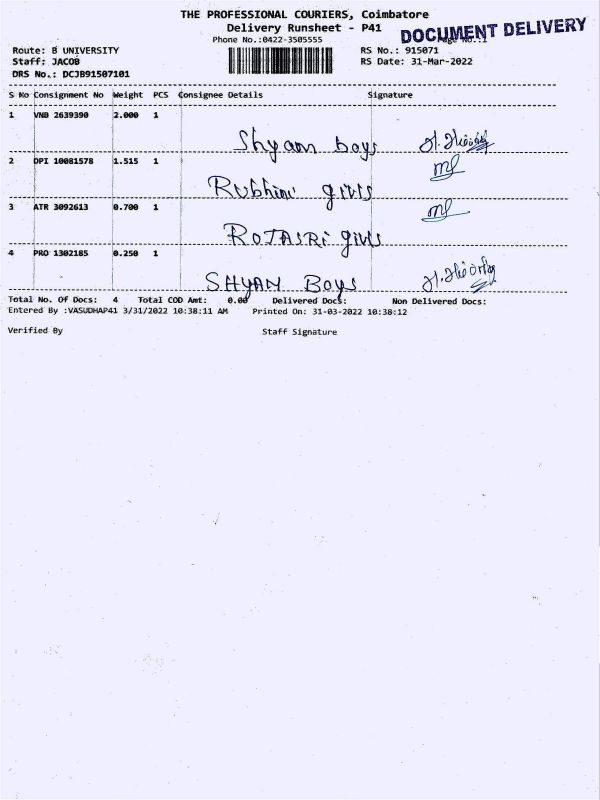 THE PROFESSIONAL COURIERS, Coimbatore
Delivery Runsheet - P41
DOCUMENT DELIVERY
Phone No.:0422-3505555
Page No.:1
Route: B UNIVERSITY
RS No.: 915071
Staff: JACOB
RS Date: 31-Mar-2022
DRS No.: DCJB91507101
S No Consignment No Weight PCS Consignee Details Signature
1 VNB 2639390 2.000 1
Shyam boys
2 OPI 10081578 1.515 1
Rubhini girls
3 ATR 3092613 0.700 1
ROJASRi girls
4 PRO 1302185 0.250 1
SHYAM Boys
Total No. Of Docs: 4 Total COD Amt: 0.00 Delivered Docs: Non Delivered Docs:
Entered By :VASUDHAP41 3/31/2022 10:38:11 AM Printed On: 31-03-2022 10:38:12
Verified By Staff Signature